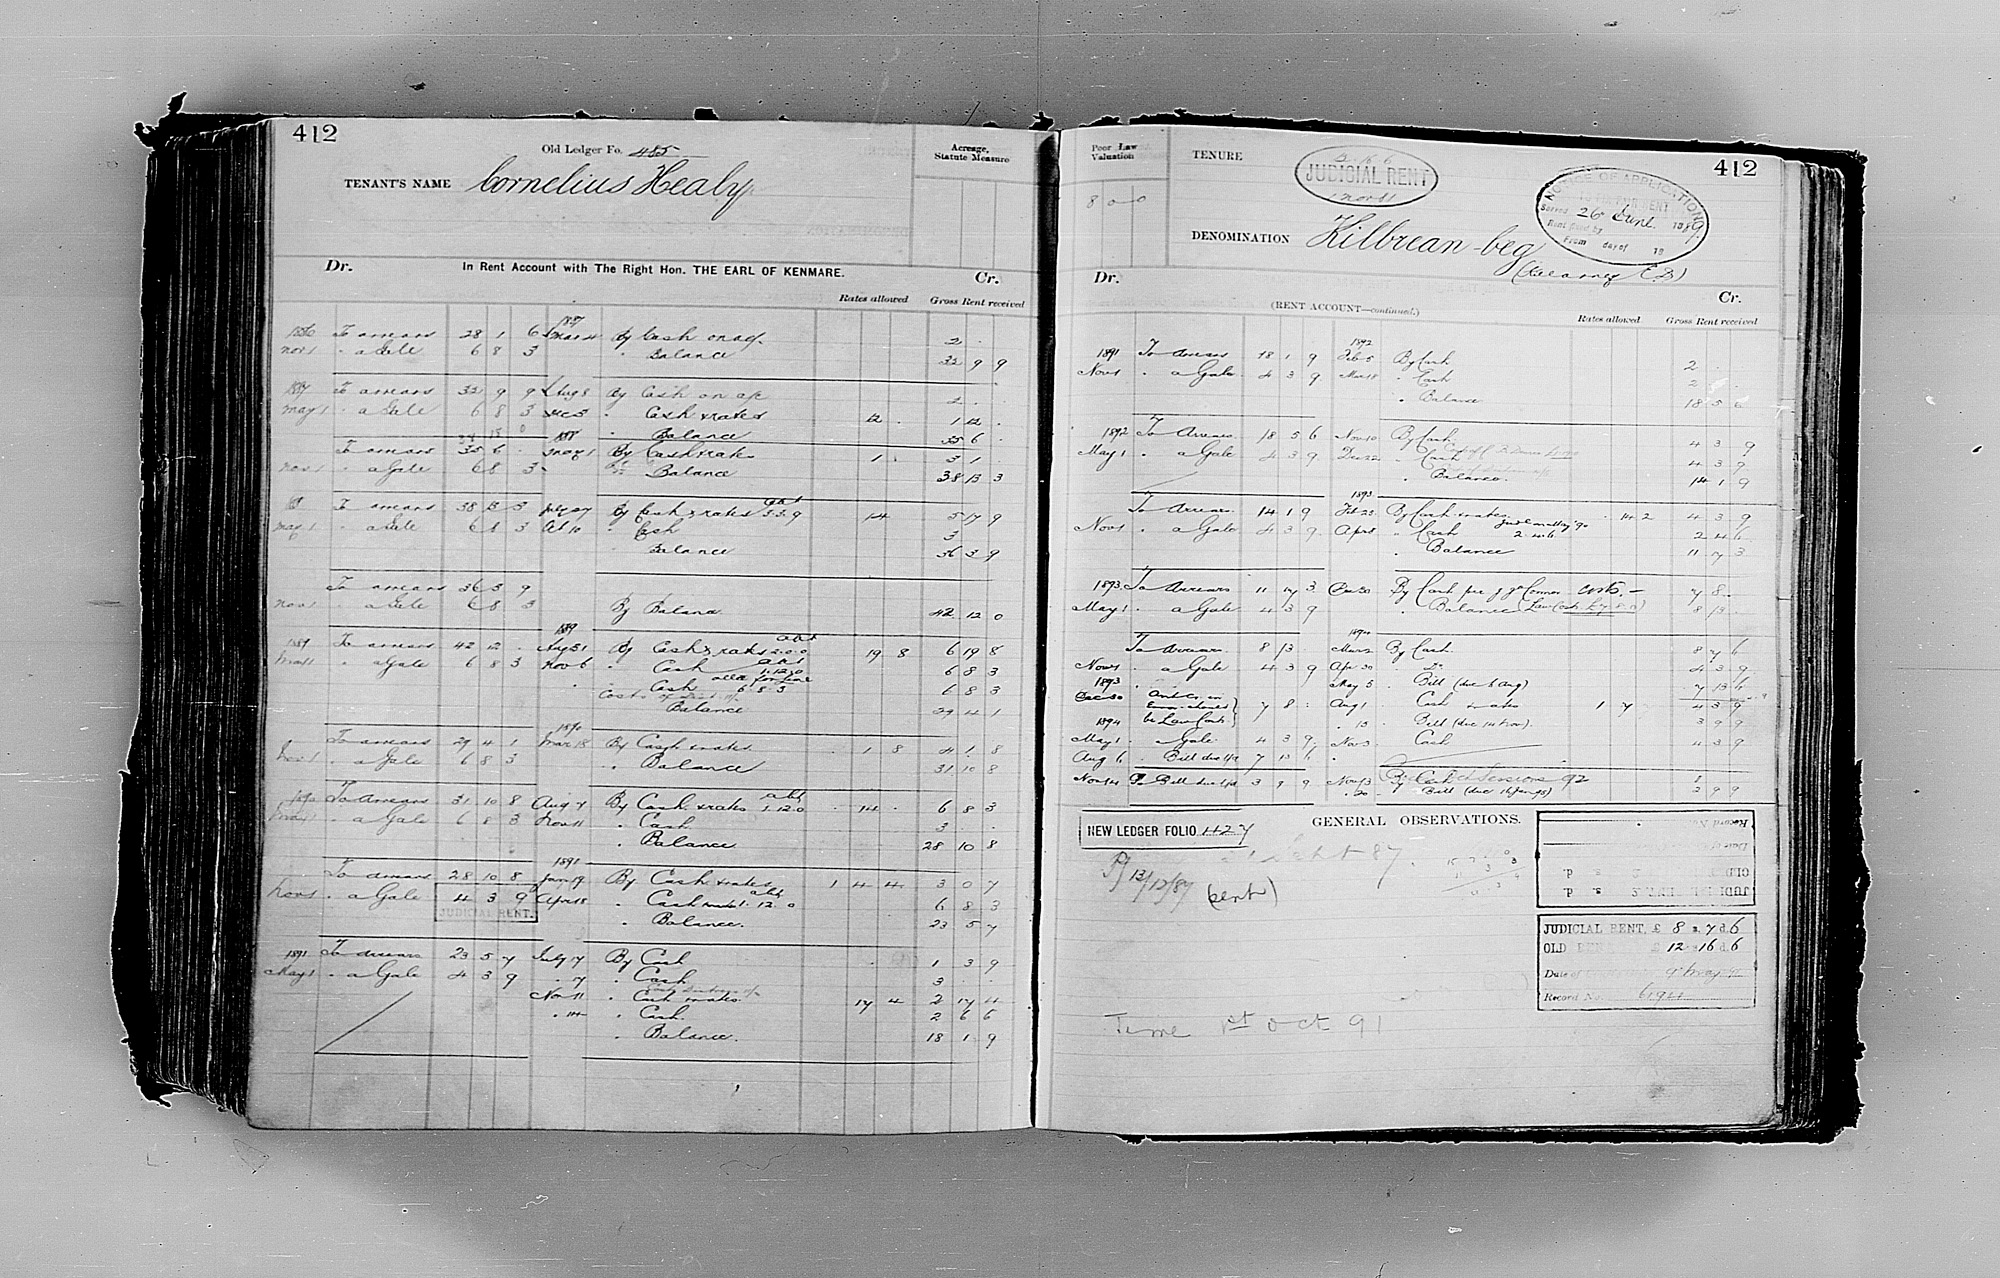 412
Old Ledger Fo. 485
TENANT'S NAME Cornelius Healy
Acreage, Statute Measure
Dr. In Rent Account with The Right Hon. THE EARL OF KENMARE. Cr.
Rates allowed Gross Rent received
1886 To arrears 28 1 6 1887 Mar 4 By Cash on a/c 2 .
Nov 1 " a Gale 6 8 3 " Balance 32 9 9
1887 To arrears 32 9 9 Aug 8 By Cash on a/c 2 .
May 1 " a Gale 6 8 3 Dec 3 " Cash & rates 12 . 1 12 .
38 18 0 1888 " Balance 35 6 .
To arrears 35 6 . May 1 By Cash & rates 1 . 3 1 .
Nov 1 " a Gale 6 8 3 " Balance 38 13 3
88 To arrears 38 13 3 By Cash & rates 3.3.9 14 5 17 9
May 1 " a Gale 6 8 3 Oct 10 " Cash 3
" Balance 36 3 9
To arrears 36 3 9
Nov 1 " a Gale 6 8 3 By Balance 42 12 0
1889 1889
To arrears 42 12 . Aug 31 By Cash & rates 2.0.0 19 8 6 19 8
May 1 " a Gale 6 8 3 Nov 6 " Cash 1.12.0 6 8 3
" Cash 6.8.3 6 8 3
Balance 29 4 1
1890
To arrears 29 4 1 Mar 18 By Cash & rates 1 8 4 1 8
Nov 1 " a Gale 6 8 3 " Balance 31 10 8
1890 To Arrears 31 10 8 Aug 7 By Cash & rates abt 1.12.0 14 . 6 8 3
May 1 " a Gale 6 8 3 Nov 11 " Cash 3 . .
" Balance 28 10 8
1891
To Arrears 28 10 8 Jan 19 By Cash & rates 1 4 4 3 0 7
Nov 1 " a Gale 4 3 9 Apr 18 " Cash 1.12.0 6 8 3
JUDICIAL RENT. " Balance. 23 5 7
1891 To Arrears 23 5 7 July 7 By Cash 1 3 9
May 1 " a Gale 4 3 9 " 7 " Cash 3 . .
Nov 11 " Cash & rates 17 4 2 17 4
" 14 " Cash. 2 6 6
" Balance. 18 1 9
412
Poor Law Valuation
8 0 0
TENURE
JUDICIAL RENT
1 Nov
NOTICE OF APPLICATION
Served 26 June 1889
Rent fixed by
From day of 18
DENOMINATION Kilbrean-beg
Dr. Cr.
(RENT ACCOUNT—continued.)
Rates allowed Gross Rent received
1892
1891 To Arrears 18 1 9 Feb 5 By Cash 2 .
Nov 1 " a Gale 4 3 9 Mar 18 " Cash 2 .
" Balance 18 5 6
1892 To Arrears 18 5 6 Nov 10 By Cash 4 3 9
May 1 " a Gale 4 3 9 Dec 22 " Cash 4 3 9
" Balance. 14 1 9
1893
To Arrears 14 1 9 Feb 23 By Cash & rates 14 2 4 3 9
Nov 1 " a Gale 4 3 9 Apr 8 " Cash 2.4.6 2 4 6
" Balance 11 7 3
1893 To Arrears 11 7 3 Dec 30 By Cash per J J O'Connor Costs. 7 8 .
May 1 " a Gale 4 3 9 " Balance (Law Costs £7.8.0) 8 13 .
1894
To Arrears 8 13 . Mar 2 By Cash 8 7 6
Nov 1 " a Gale 4 3 9 Apr 30 Do 4 3 9
1893 May 5 " Bill (due 6 Aug) 7 13 6
Dec 30 Aug 1 Cash & rates 1 7 4 3 9
1894 be Law Costs 7 8 " 13 Bill (due 14 Nov) 3 9 9
May 1 " Gale 4 3 9 Nov 3 Cash 4 3 9
Aug 6 " Bill due 7 13 6
Nov 14 To Bill due 3 9 9 Nov 13 By Cash Sessions 92 1
" 20 " Bill (due 16 Jan 95) 3 9 9
NEW LEDGER FOLIO 1127
GENERAL OBSERVATIONS.
13/12/87 (sent)
Sept 87
JUDICIAL RENT, £ 8 s. 7 d. 6
OLD RENT £ 12 s. 16 d. 6
Date of 9 May 91
Record No. 6194
Time 1st Oct 91